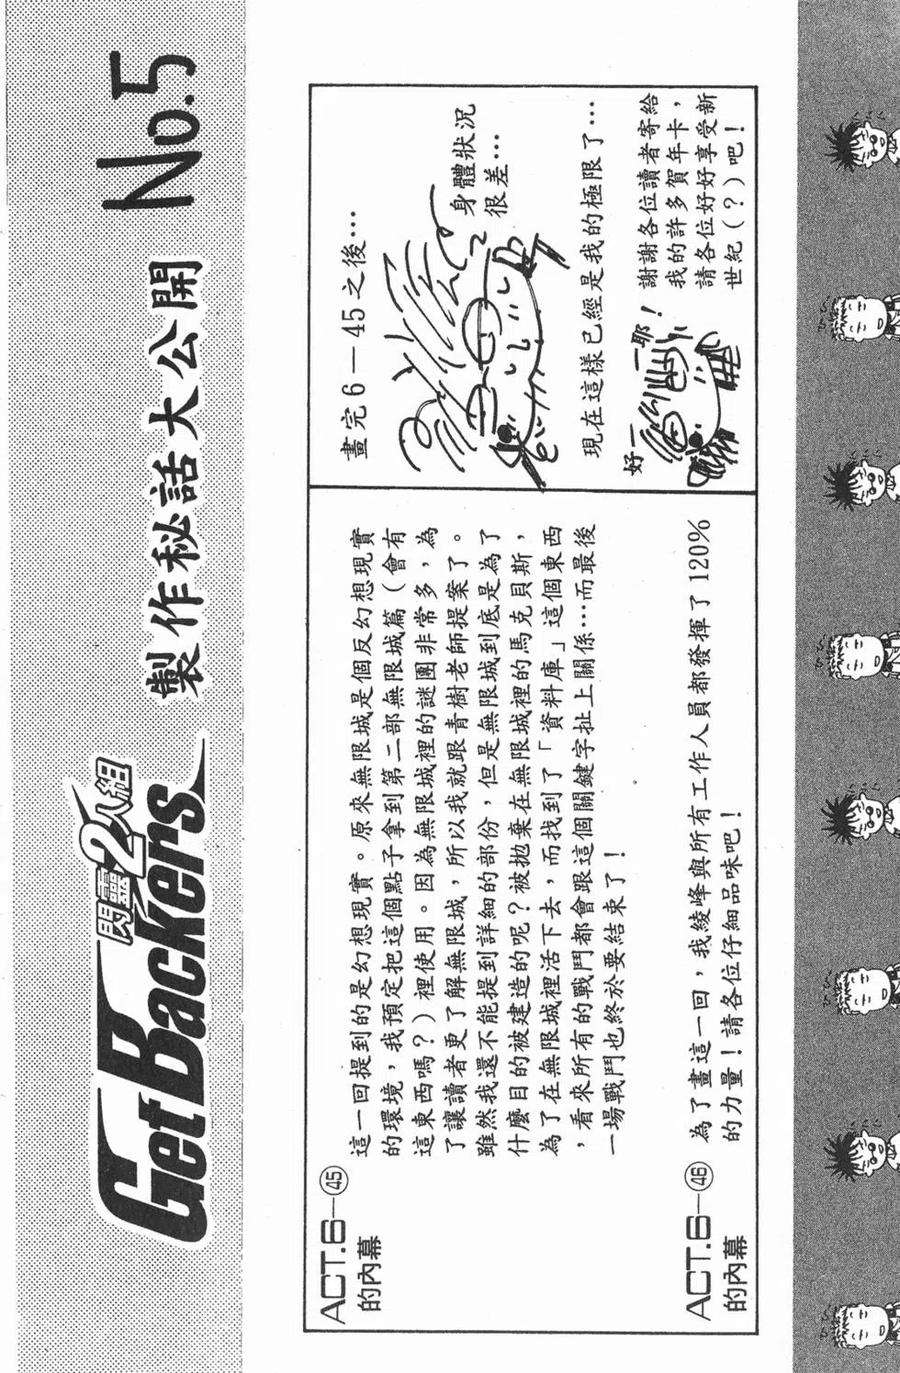 GetBackers
閃靈2人組
製作秘話大公開 No.5
ACT.6—㊺
的內幕
這一回提到的是幻想現實。原來無限城是個反幻想現實
的環境，我預定把這個點子拿到第二部無限城篇（會有
這東西嗎？）裡使用。因為無限城裡的謎團非常多，為
了讓讀者更了解無限城，所以我就跟青樹老師提案了。
雖然我還不能提到詳細的部份，但是無限城到底是為了
什麼目的被建造的呢？被拋棄在無限城裡的馬克貝斯，
為了在無限城裡活下去，而找到了「資料庫」這個東西
，看來所有的戰鬥都會跟這個關鍵字扯上關係…而最後
一場戰鬥也終於要結束了！
ACT.6—㊻
的內幕
為了畫這一回，我綾峰與所有工作人員都發揮了120%
的力量！請各位仔細品味吧！
畫完6－45之後…
身體狀況
很差…
現在這樣已經是我的極限了…
好——耶！
謝謝各位讀者寄給
我的許多賀年卡，
請各位好好享受新
世紀（？）吧！